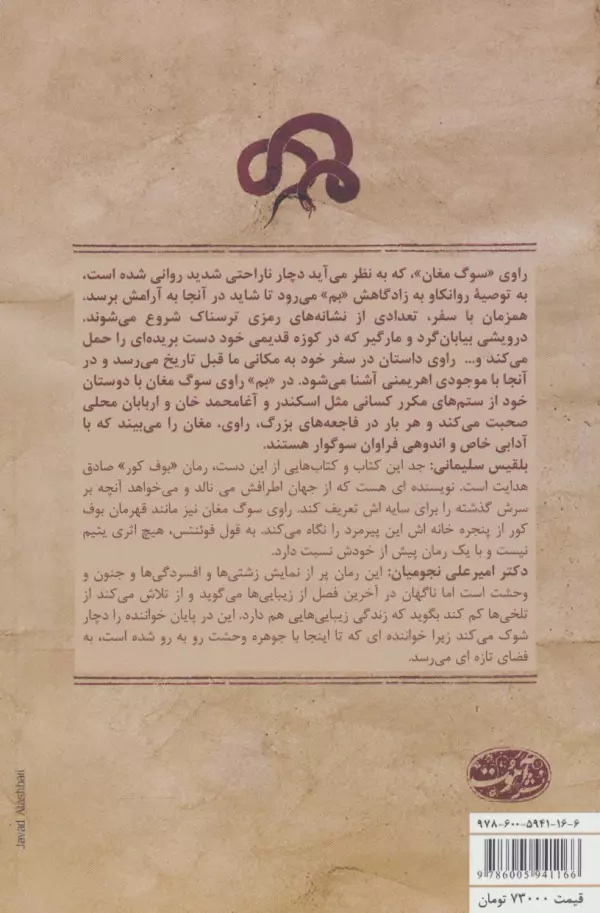 راوی «سوگ مغان»، که به نظر می‌آید دچار ناراحتی شدید روانی شده است،
به توصیهٔ روانکاو به زادگاهش «بم» می‌رود تا شاید در آنجا به آرامش برسد.
همزمان با سفر، تعدادی از نشانه‌های رمزی ترسناک شروع می‌شوند.
درویشی بیابان‌گرد و مارگیر که در کوزه قدیمی خود دست بریده‌ای را حمل
می‌کند و... راوی داستان در سفر خود به مکانی ما قبل تاریخ می‌رسد و در
آنجا با موجودی اهریمنی آشنا می‌شود. در «بم» راوی سوگ مغان با دوستان
خود از ستم‌های مکرر کسانی مثل اسکندر و آغامحمد خان و اربابان محلی
صحبت می‌کند و هر بار در فاجعه‌های بزرگ، راوی، مغان را می‌بیند که با
آدابی خاص و اندوهی فراوان سوگوار هستند.
بلقیس سلیمانی: جد این کتاب و کتاب‌هایی از این دست، رمان «بوف کور» صادق
هدایت است. نویسنده ای هست که از جهان اطرافش می نالد و می‌خواهد آنچه بر
سرش گذشته را برای سایه اش تعریف کند. راوی سوگ مغان نیز مانند قهرمان بوف
کور از پنجره خانه اش این پیرمرد را نگاه می‌کند. به قول فوئنتس، هیچ اثری یتیم
نیست و با یک رمان پیش از خودش نسبت دارد.
دکتر امیرعلی نجومیان: این رمان پر از نمایش زشتی‌ها و افسردگی‌ها و جنون و
وحشت است اما ناگهان در آخرین فصل از زیبایی‌ها می‌گوید و از تلاش می‌کند از
تلخی‌ها کم کند بگوید که زندگی زیبایی‌هایی هم دارد. این در پایان خواننده را دچار
شوک می‌کند زیرا خواننده ای که تا اینجا با جوهره وحشت رو به رو شده است، به
فضای تازه ای می‌رسد.
Javad Atashbari
۹۷۸-۶۰۰-۵۹۴۱-۱۶-۶
9 786005 941166
قیمت ۷۳۰۰۰ تومان